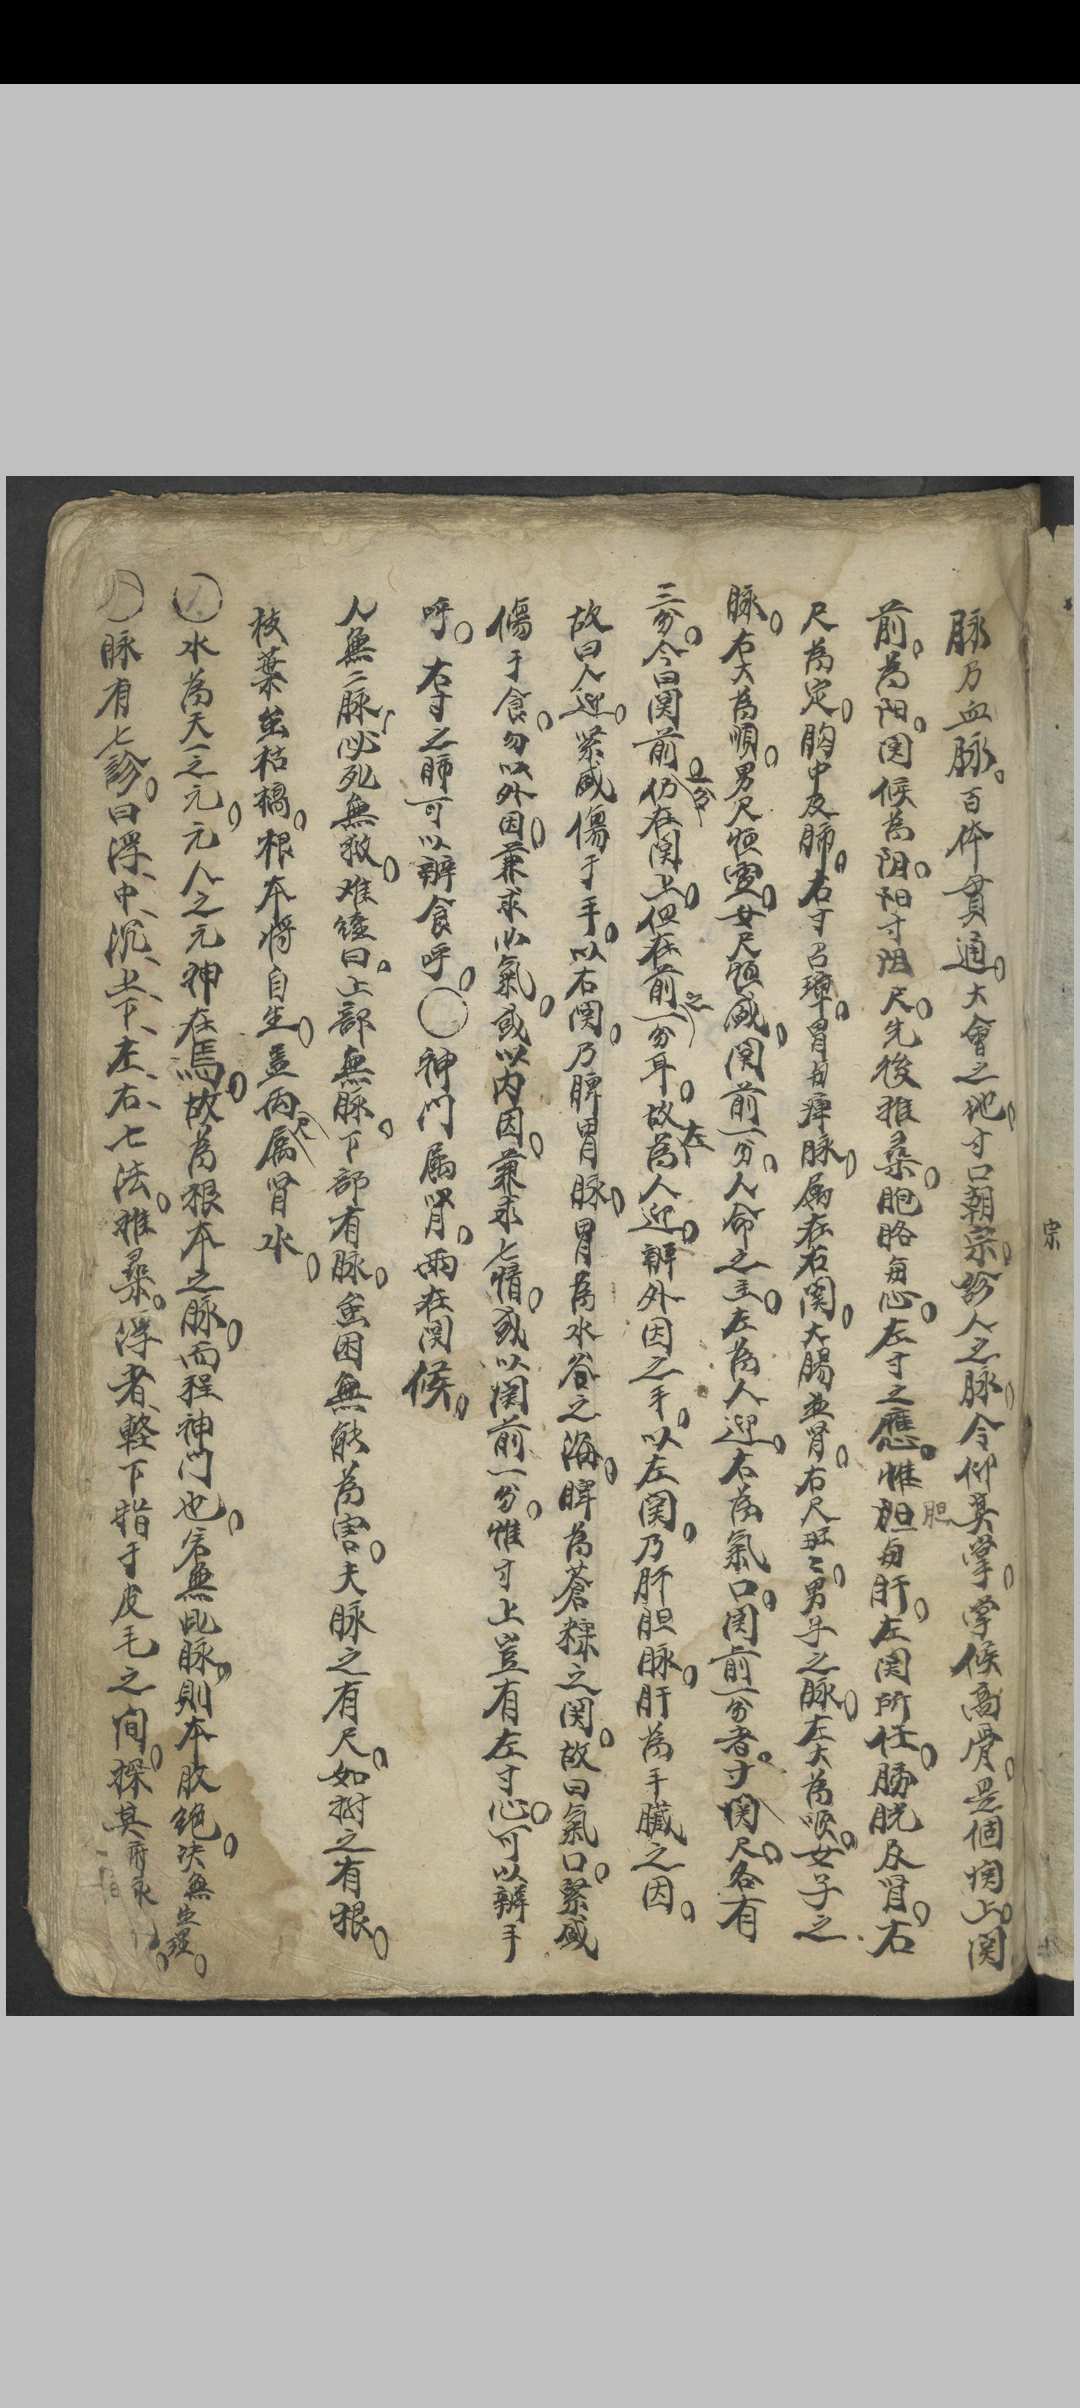 脉乃血脉。百体貫通。大會之地。寸口朝宗。診人之脉。令仰其掌。掌候高骨。是個関上。関
前。為阳。関候為阴。阳寸阴尺。先後推尋。胞胳與心。左寸之應。惟胆與肝。左関所任。膀胱及腎。右
胆
尺為定。胸中及肺。右寸召璋。胃與痺脉。属在右関。大腸並腎。右尺班ミ。男子之脉。左大為順。女子之
脉。右大為順。男尺恒虛。女尺恒盛。関前一分。人命之主。左為人迎。右為氣口。関前一分者。寸関尺。各有
三分。今曰関前。一分仍在関上。但在前之一分耳。故左為人迎。辨外因之手。以左関。乃肝胆脉。肝為手臓之因。
故曰人迎。紧盛傷于手。以右関。乃脾胃脉。胃為水谷之海。脾為蒼糠之関。故曰氣口。紧盛
傷于食。勿以外因。兼求小氣。或以内因。兼求七情。或以関前一分。惟寸上豈有左寸心。可以辨手
呼。右寸之肺可以辨食呼。〇神門属腎。両在関候。
人無二脉。必死無救。难経曰。上部無脉。下部有脉。虽困無能為害。夫脉之有尺。如樹之有根。
枝葉虽枯槁。根本将自生。盖両尺属腎水。
〇水為天一之元。元人之元神在焉。故為根本之脉。而程神門也。若無此脉。則本敗绝。决無生理。
〇脉有七診。曰浮、中、沉、上、下、左、右、七法。推尋。浮者、軽下指于皮毛之间。探其
宗